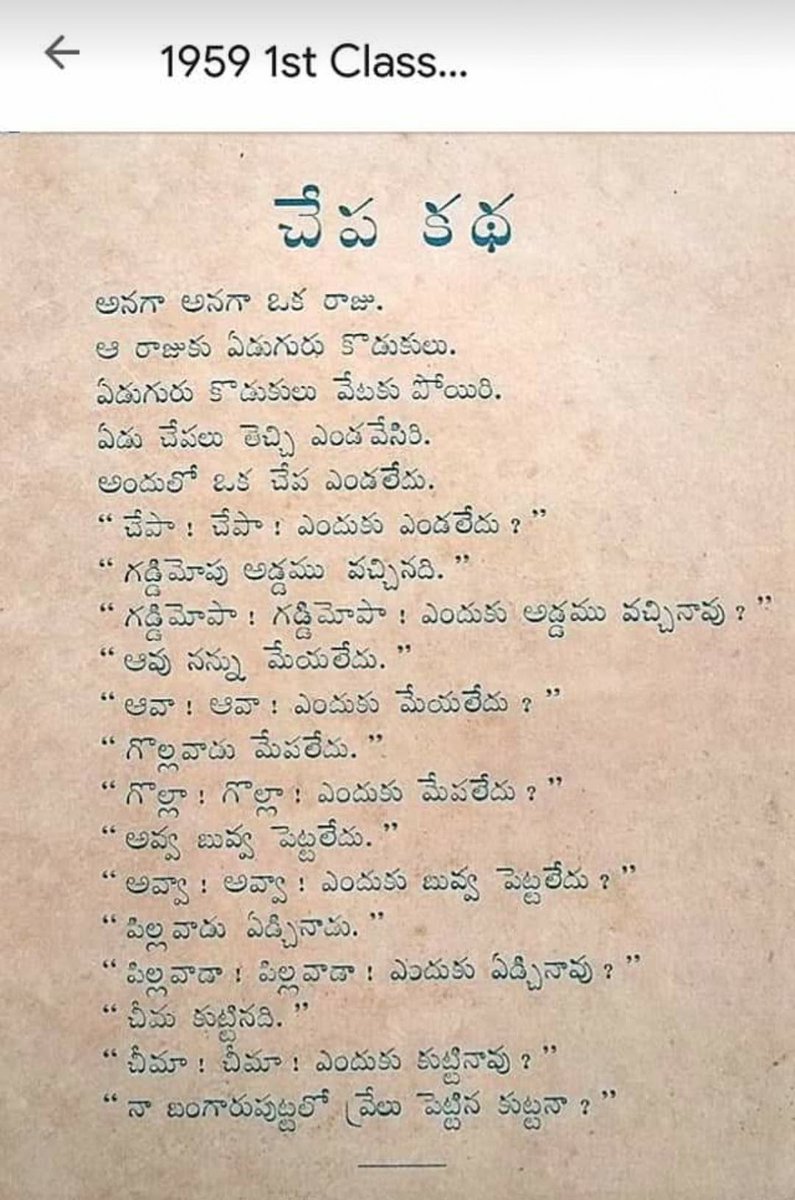 1959 1st Class...
చేప కథ
అనగా అనగా ఒక రాజు.
ఆ రాజుకు ఏడుగురు కొడుకులు.
ఏడుగురు కొడుకులు వేటకు పోయిరి.
ఏడు చేపలు తెచ్చి ఎండవేసిరి.
అందులో ఒక చేప ఎండలేదు.
“ చేపా ! చేపా ! ఎందుకు ఎండలేదు ? ”
“ గడ్డిమోపు అడ్డము వచ్చినది. ”
“ గడ్డిమోపా ! గడ్డిమోపా ! ఎందుకు అడ్డము వచ్చినావు ? ”
“ ఆవు నన్ను మేయలేదు. ”
“ ఆవా ! ఆవా ! ఎందుకు మేయలేదు ? ”
“ గొల్లవాడు మేపలేదు. ”
“ గొల్లా ! గొల్లా ! ఎందుకు మేపలేదు ? ”
“ అవ్వ బువ్వ పెట్టలేదు. ”
“ అవ్వా ! అవ్వా ! ఎందుకు బువ్వ పెట్టలేదు ? ”
“ పిల్లవాడు ఏడ్చినాడు. ”
“ పిల్లవాడా ! పిల్లవాడా ! ఎందుకు ఏడ్చినావు ? ”
“ చీమ కుట్టినది. ”
“ చీమా ! చీమా ! ఎందుకు కుట్టినావు ? ”
“ నా బంగారుపుట్టలో వ్రేలు పెట్టిన కుట్టనా ? ”